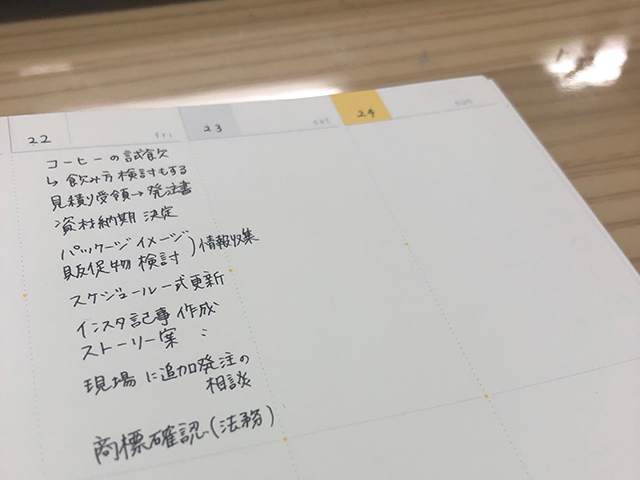 22 fri
23 sat
24 sun
コーヒーの試飲
↳ 飲み方検討もする
見積り受領→発注書
資材納期 決定
パッケージイメージ
販促物 検討 ) 情報収集
スケジュール一式更新
インスタ記事 作成
ストーリー案 :
現場に追加発注の
相談
商標確認(法務)